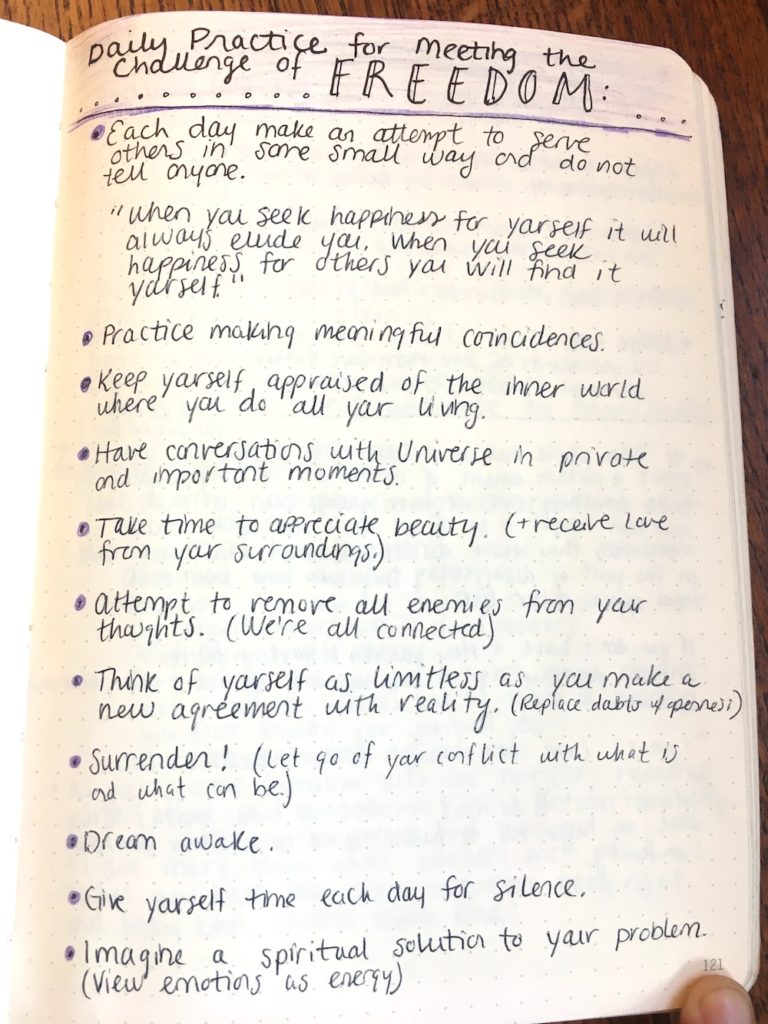 Daily Practice for meeting the
Challenge of FREEDOM:
Each day make an attempt to serve
others in some small way and do not
tell anyone.
"When you seek happiness for yourself it will
always elude you. When you seek
happiness for others you will find it
yourself."
Practice making meaningful coincidences.
Keep yourself appraised of the inner world
where you do all your living.
Have conversations with Universe in private
and important moments.
Take time to appreciate beauty. (+ receive love
from your surroundings.)
Attempt to remove all enemies from your
thoughts. (We're all connected)
Think of yourself as limitless as you make a
new agreement with reality. (Replace doubts w/ openness)
Surrender! (Let go of your conflict with what is
and what can be.)
Dream awake.
Give yourself time each day for silence.
Imagine a spiritual solution to your problem.
(View emotions as energy)
121